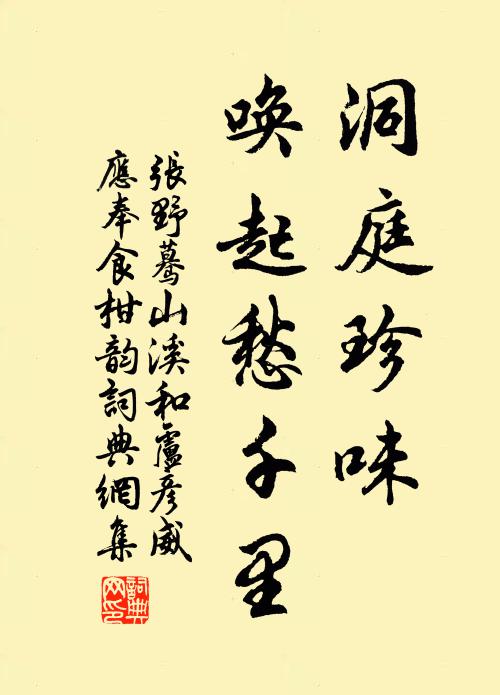 洞庭珍味
喚起愁千里
張野驀山溪和盧彥威
應奉食柑韵詞典網集
詞典网印